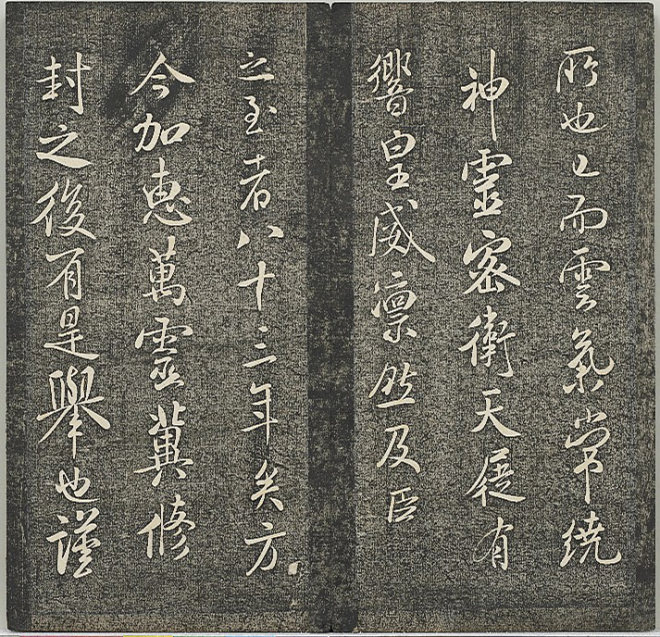 所也已而雲氣常繞
神靈密衛天屣有
響皇威凛然及臣
之至者八十三年矣方
今加惠萬靈冀修
封之後有是舉也謹